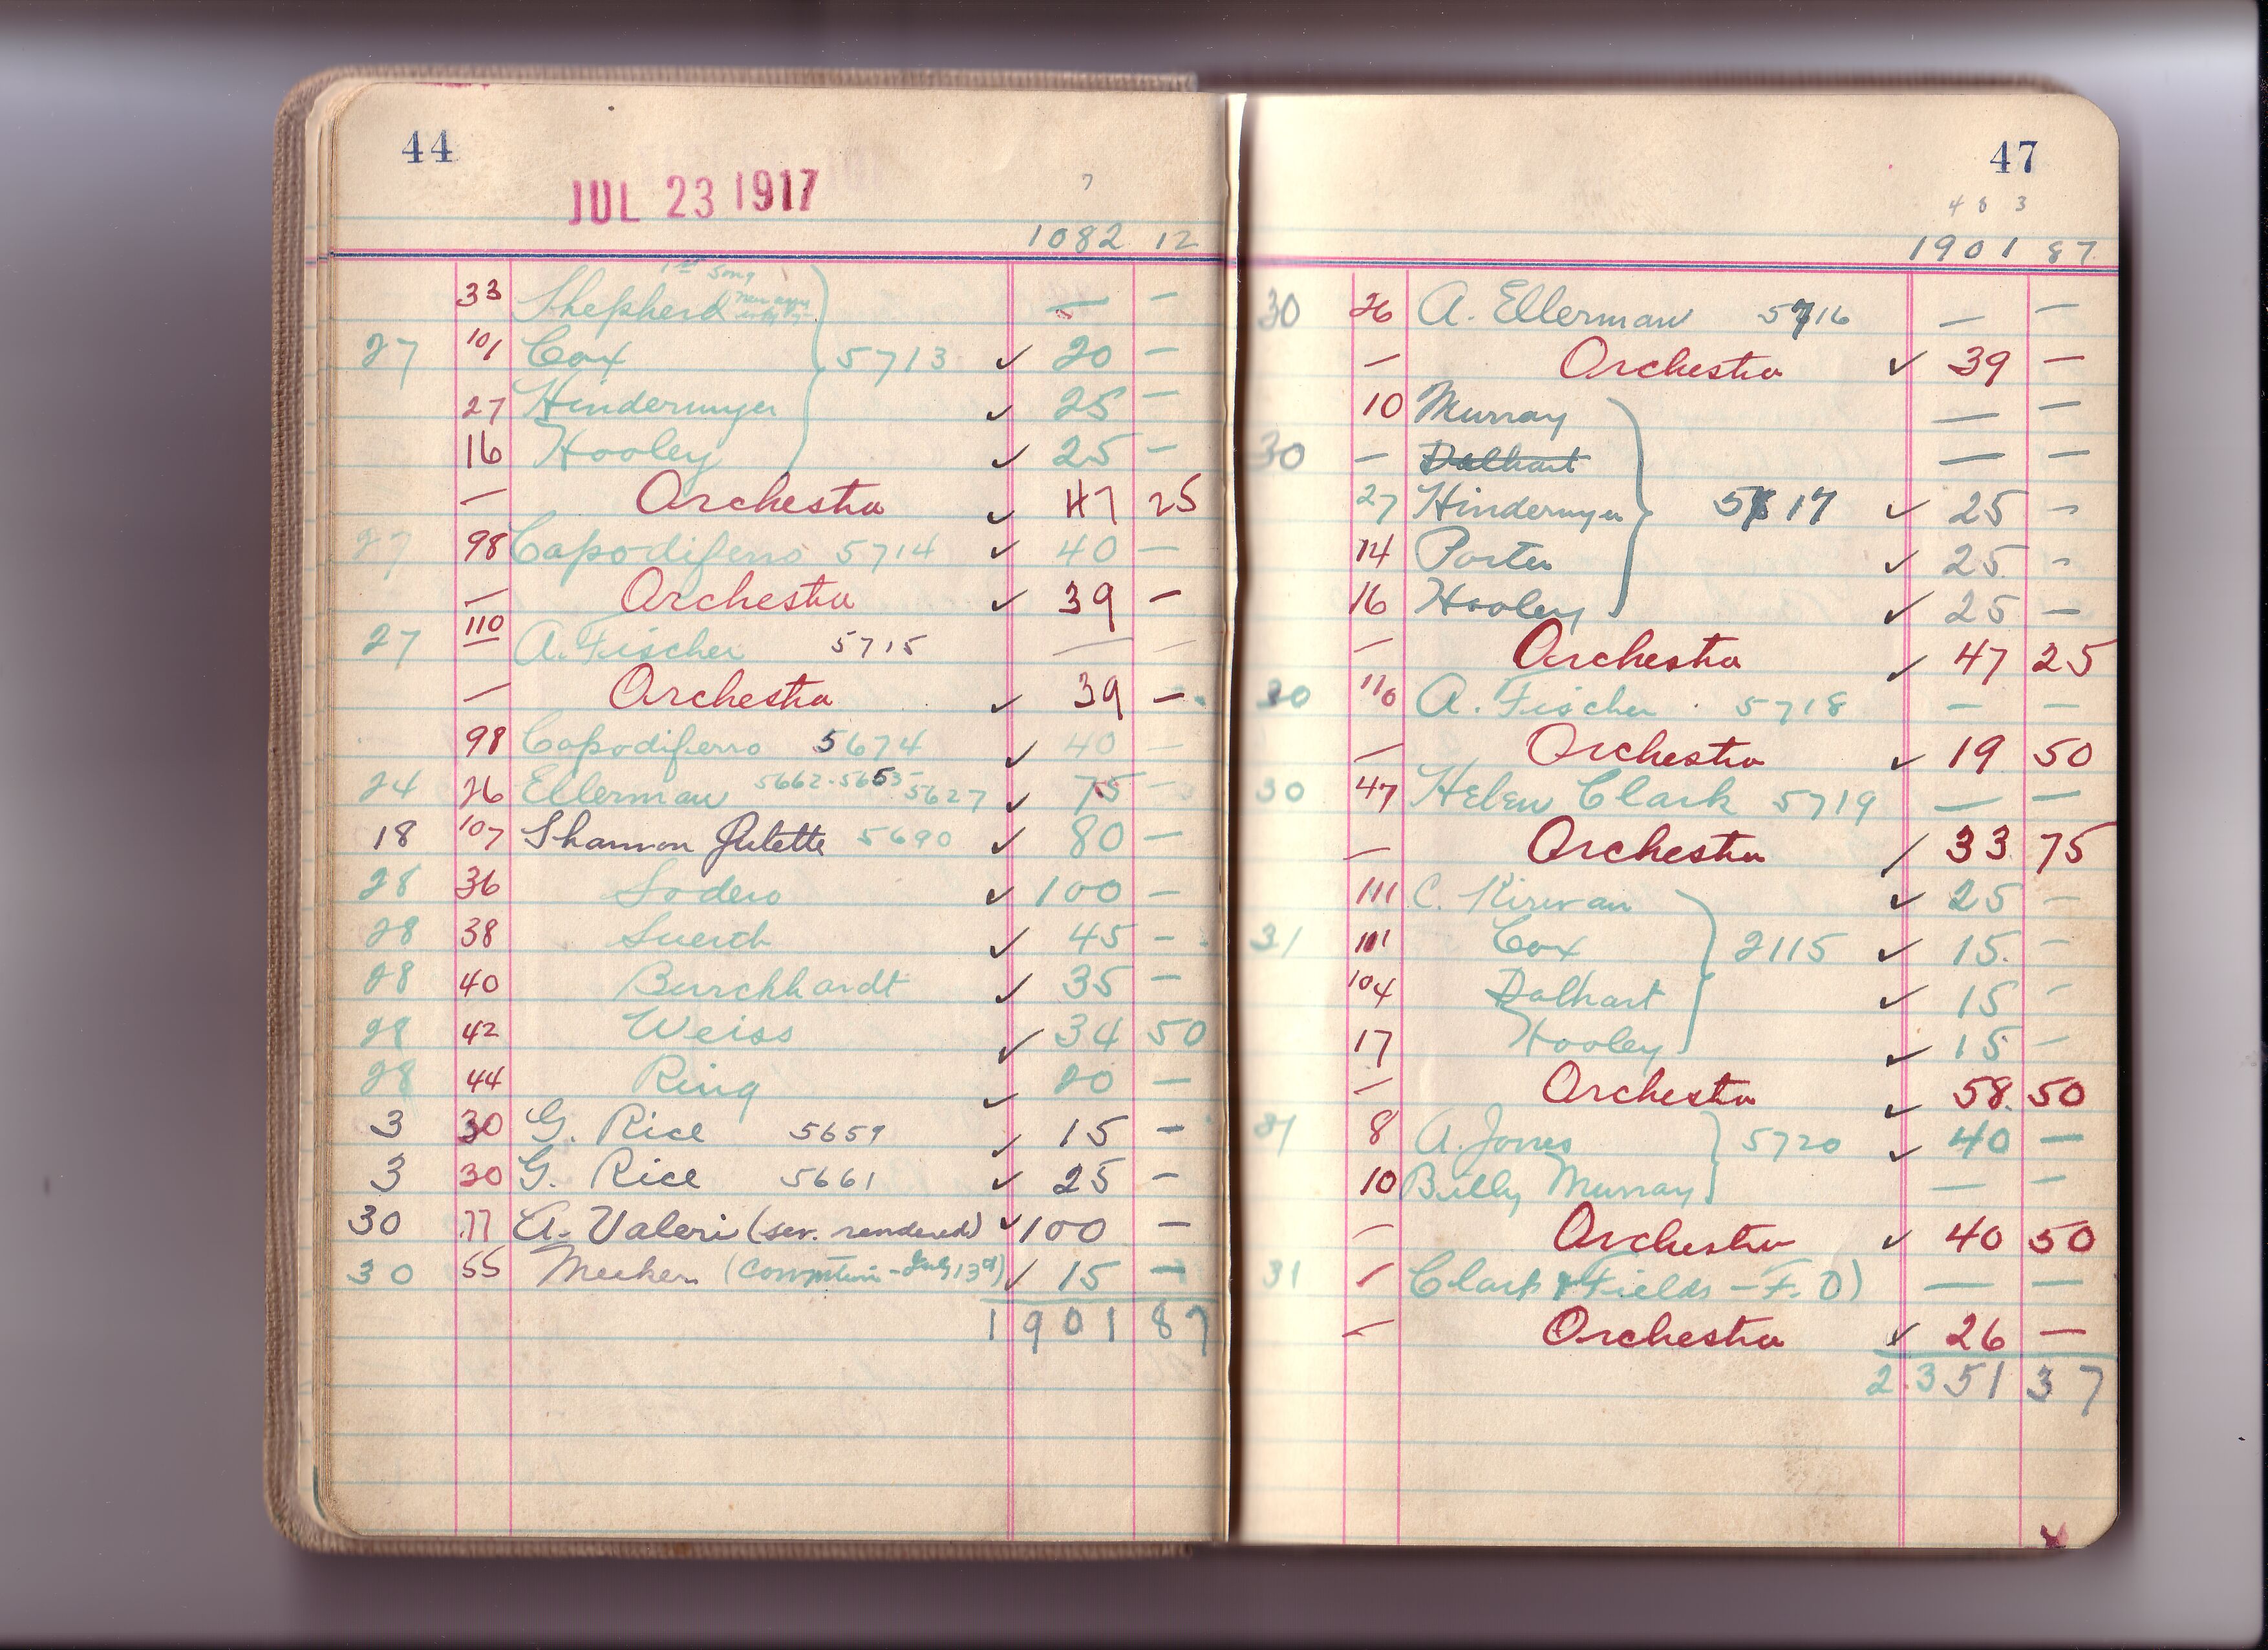 44
JUL 23 1917
7
1082 12
1st Song
33 Shepherd — —
27 101 Cox 5713 ✓ 20 —
27 Hindermyer ✓ 25 —
16 Hooley ✓ 25 —
— Orchestra ✓ 47 25
27 98 Capodiferro 5714 ✓ 40 —
— Orchestra ✓ 39 —
27 110 A. Fischer 5715 — —
— Orchestra ✓ 39 —
98 Capodiferro 5674 ✓ 40 —
24 26 Ellerman 5662-5653 5627 ✓ 75 —
18 107 Shannon Qutette 5690 ✓ 80 —
28 36 Sodero ✓ 100 —
28 38 Suerth ✓ 45 —
28 40 Burckhardt ✓ 35 —
28 42 Weiss ✓ 34 50
28 44 Ring ✓ 20 —
3 30 G. Rice 5659 ✓ 15 —
3 30 G. Rice 5661 ✓ 25 —
30 77 A. Valeri (ser. rendered) ✓ 100 —
30 55 Meeker ( July 13th) ✓ 15 —
1901 87
47
4 8 3
1901 87
30 26 A. Ellerman 5716 — —
— Orchestra ✓ 39 —
10 Murray — —
30 — Dalhart — —
27 Hindermyer 5717 ✓ 25 —
14 Porter ✓ 25 —
16 Hooley ✓ 25 —
— Orchestra ✓ 47 25
30 110 A. Fischer 5718 — —
— Orchestra ✓ 19 50
30 47 Helen Clark 5719 — —
— Orchestra ✓ 33 75
111 C. Kirwan ✓ 25 —
31 101 Cox 2115 ✓ 15 —
104 Dalhart ✓ 15 —
17 Hooley ✓ 15 —
— Orchestra ✓ 58 50
31 8 A. Jones 5720 ✓ 40 —
10 Billy Murray — —
— Orchestra ✓ 40 50
31 — Clark & Fields - F. O) — —
— Orchestra ✓ 26 —
2351 37